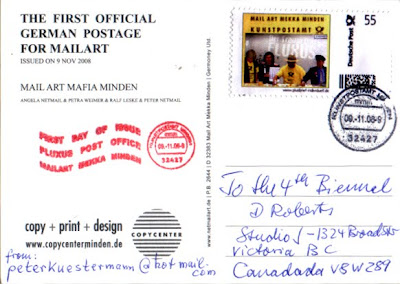 THE FIRST OFFICIAL
GERMAN POSTAGE
FOR MAILART
ISSUED ON 9 NOV 2008
MAIL ART MAFIA MINDEN
ANGELA NETMAIL & PETRA WEIMER & RALF LESKE & PETER NETMAIL
FIRST DAY OF ISSUE
FLUXUS POST OFFICE
MAILART MEKKA MINDEN
32427
copy + print + design
www.copycenterminden.de
COPYCENTER
from:
peterkuestermann@hotmail.com
www.netmailart.de | P.B. 2644 | D 32383 Mail Art Mekka Minden | Germoney Ltd.
MAIL ART MEKKA MINDEN
KUNSTPOSTAMT
55
Deutsche Post
09.-11.08-9
32427
To the 4th Biennel
D Roberts
Studio f -1324 Broadstr
Victoria BC
Canadada V8W 2B9